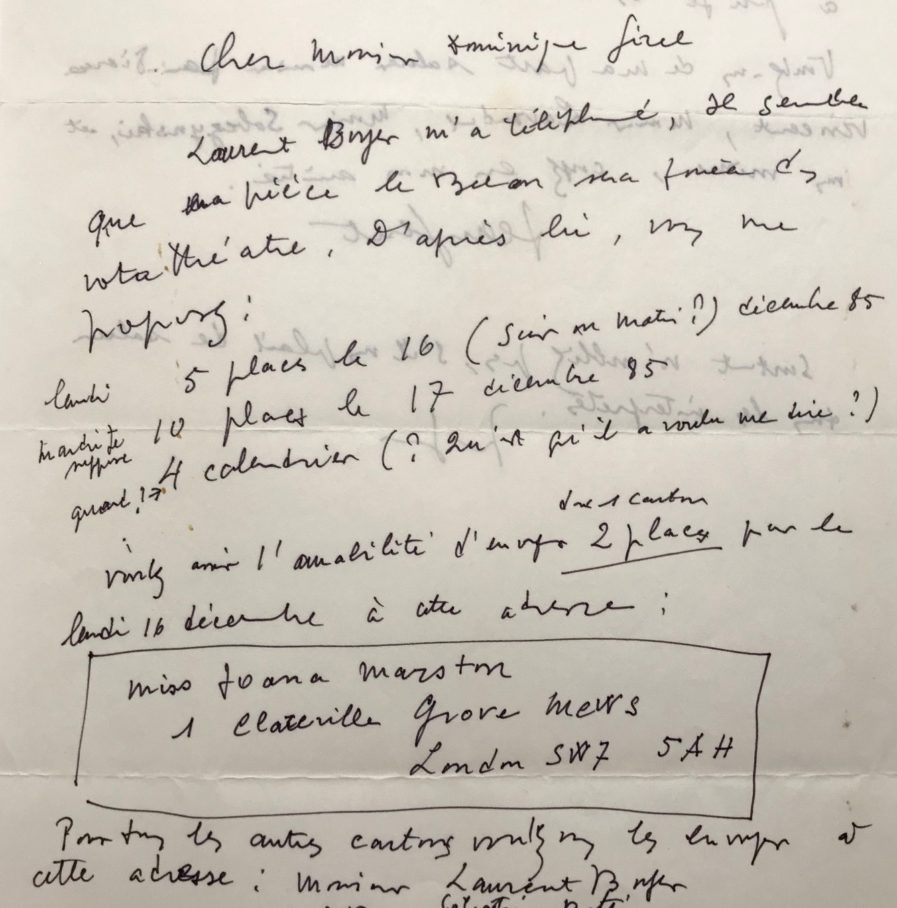 Cher Monsieur Dominique
Laurent Boyer m'a téléphoné, il semble
que ma pièce le Balcon sera jouée ds
votre théâtre. D'après lui, vous me
proposez :
lundi 5 places le 16 (soir ou matin ?) décembre 85
mardi je suppose 10 places le 17 décembre 85
quand ?→ 4 calendrier (? Qu'est qu'il a voulu me dire ?)
donc 1 carton
veuillez avoir l'amabilité d'envoyer 2 places pour le
lundi 16 décembre à cette adresse :
Miss Joana Marston
1 Grove Mews
London SW7 5AH
Pour tous les autres cartons veuillez les envoyer à
cette adresse : Monsieur Laurent Boyer